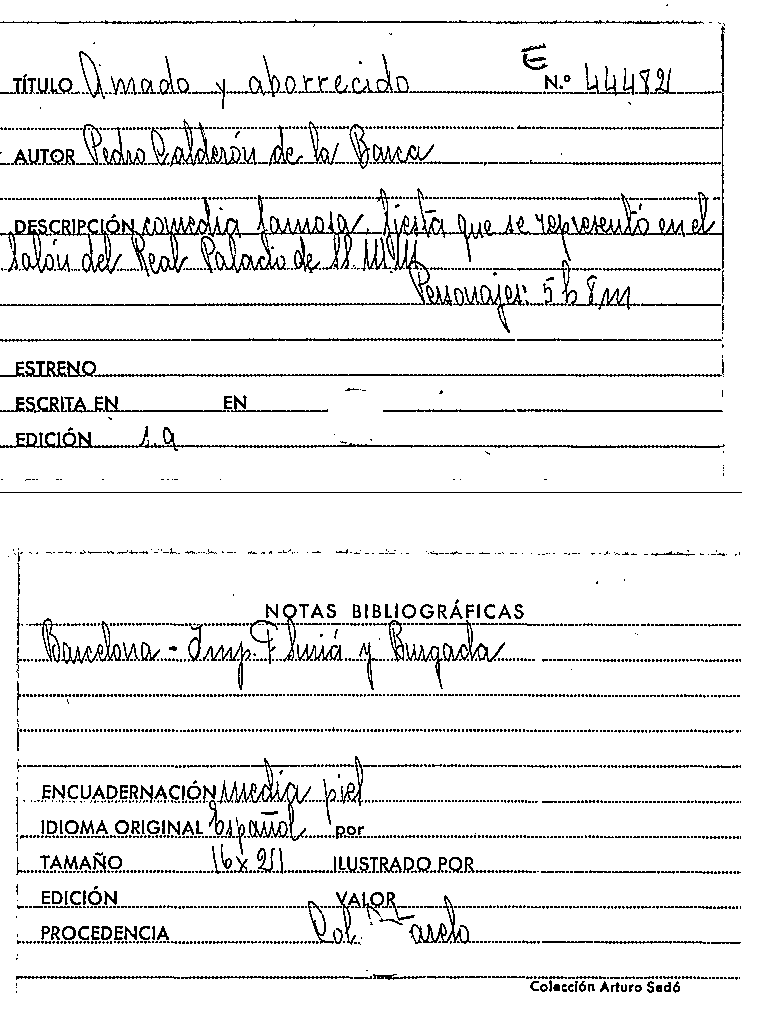 E
TÍTULO Amado y aborrecido N.º 444821
AUTOR Pedro Calderón de la Barca
DESCRIPCIÓN comedia famosa. fiesta que se representó en el
Salón del Real Palacio de SS. MM
Personajes: 5 h 8 m
ESTRENO
ESCRITA EN EN
EDICIÓN 1.a
NOTAS BIBLIOGRÁFICAS
Barcelona - Imp. F Suriá y Burgada
ENCUADERNACIÓN media piel
IDIOMA ORIGINAL Español por
TAMAÑO 16 x 21 ILUSTRADO POR
EDICIÓN VALOR
PROCEDENCIA Col.
Colección Arturo Sedó